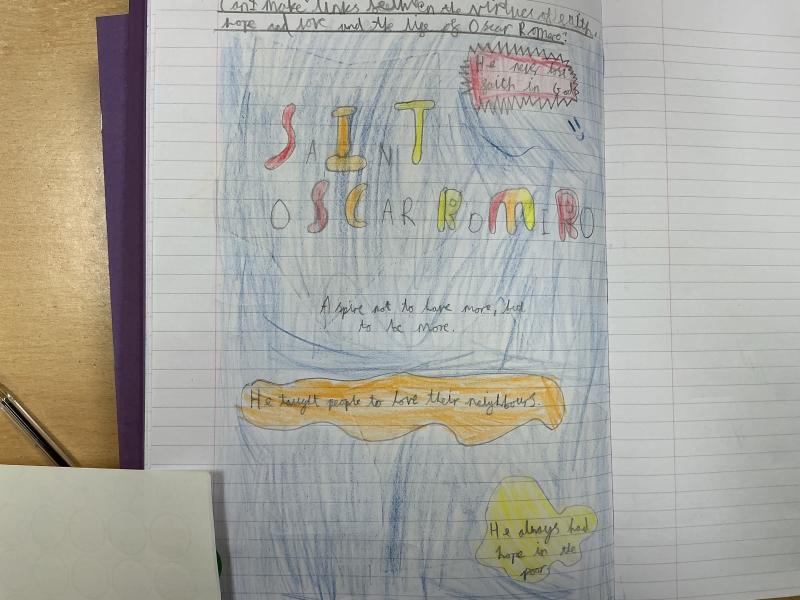 Can I make links between the virtues of faith,
hope and love and the life of Oscar Romero?
He never lost
faith in God
SAINT
OSCAR ROMERO
Aspire not to have more, but
to be more.
He taught people to love their neighbours.
He always had
hope in the
poor